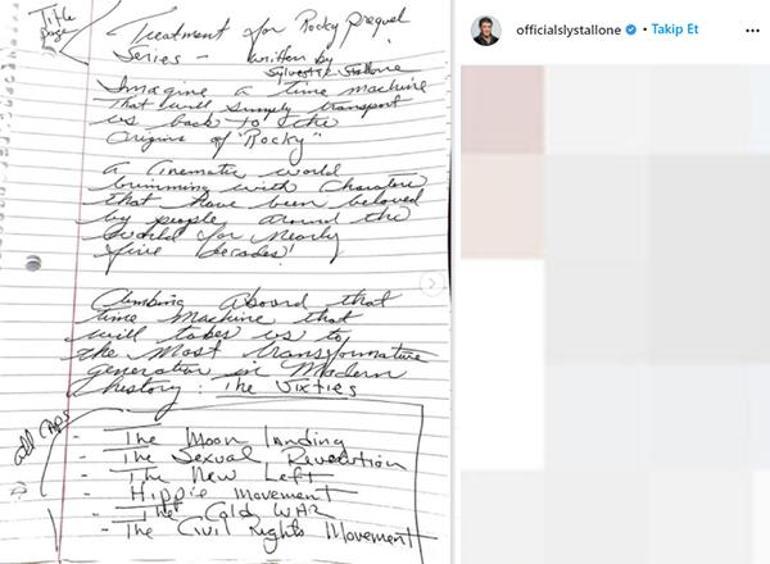 Title page
Treatment for Rocky prequel
Series - written by
Sylvester Stallone
Imagine a time machine
That will simply transport
us back to the
Origins of "Rocky"
a Cinematic world
brimming with Characters
that have been beloved
by people around the
world for Nearly
five decades!
Climbing aboard that
time Machine that
will takes us to
the Most transformative
generation in Modern
history: The Sixties
all caps
- The Moon landing
- The Sexual Revolution
- The New Left
- Hippie Movement
- The Cold WAR
- The Civil Rights Movement
officialslystallone • Takip Et ...